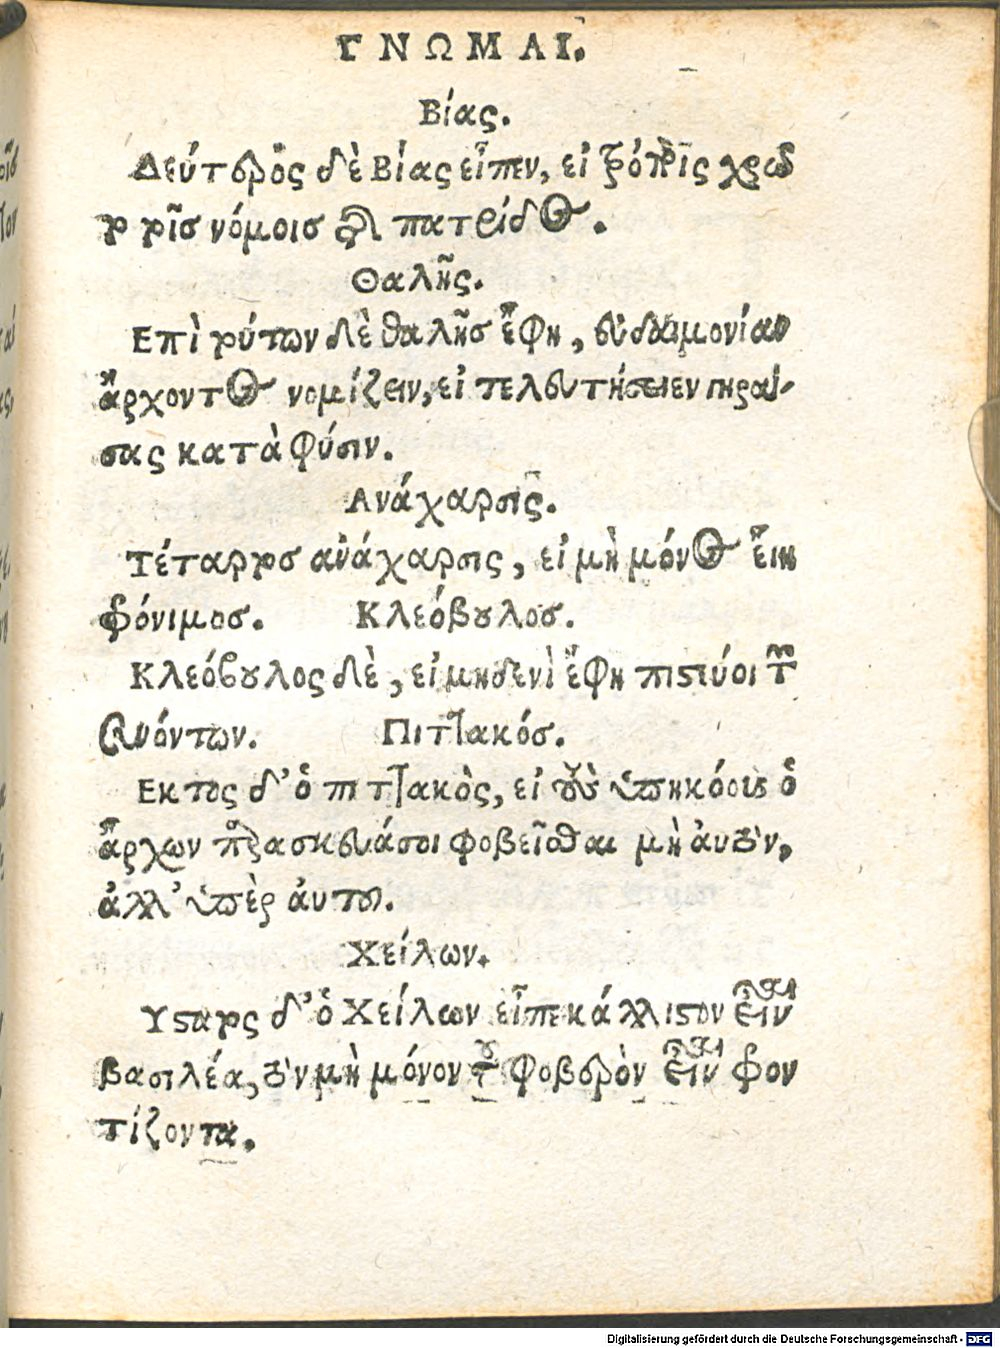 ΓΝΩΜΑΙ.
Βίας.
Δεύτερος δὲ Βίας εἶπεν, εἰ πρῶτος χρῷ
το τοῖσ νόμοισ τῆς πατρίδος.
Θαλῆς.
Επὶ τούτων δὲ θαλῆσ ἔφη, εὐδαιμονίαν
ἄρχοντος νομίζειν, εἰ τελευτήσειεν γηρά-
σας κατὰ φύσιν.
Ανάχαρσις.
Τέταρτοσ ἀνάχαρσις, εἰ μὴ μόνος εἴη
φρόνιμοσ. Κλεόβουλοσ.
Κλεόβουλος δὲ, εἰ μηδενὶ ἔφη πιστεύοι τῶν
συνόντων. Πιττακόσ.
Εκτος δ' ὁ πιττακὸς, εἰ τοὺς ὑπηκόους ὁ
ἄρχων παρασκευάσοι φοβεῖσθαι μὴ ἀυτὸν,
ἀλλ' ὑπὲρ ἀυτοῦ.
Χείλων.
Υστατος δ' ὁ Χείλων εἶπε κάλλιστον εἶναι
βασιλέα, τὸν μὴ μόνον τοῦ φοβερὸν εἶναι φρον
τίζοντα.
Digitalisierung gefördert durch die Deutsche Forschungsgemeinschaft - DFG